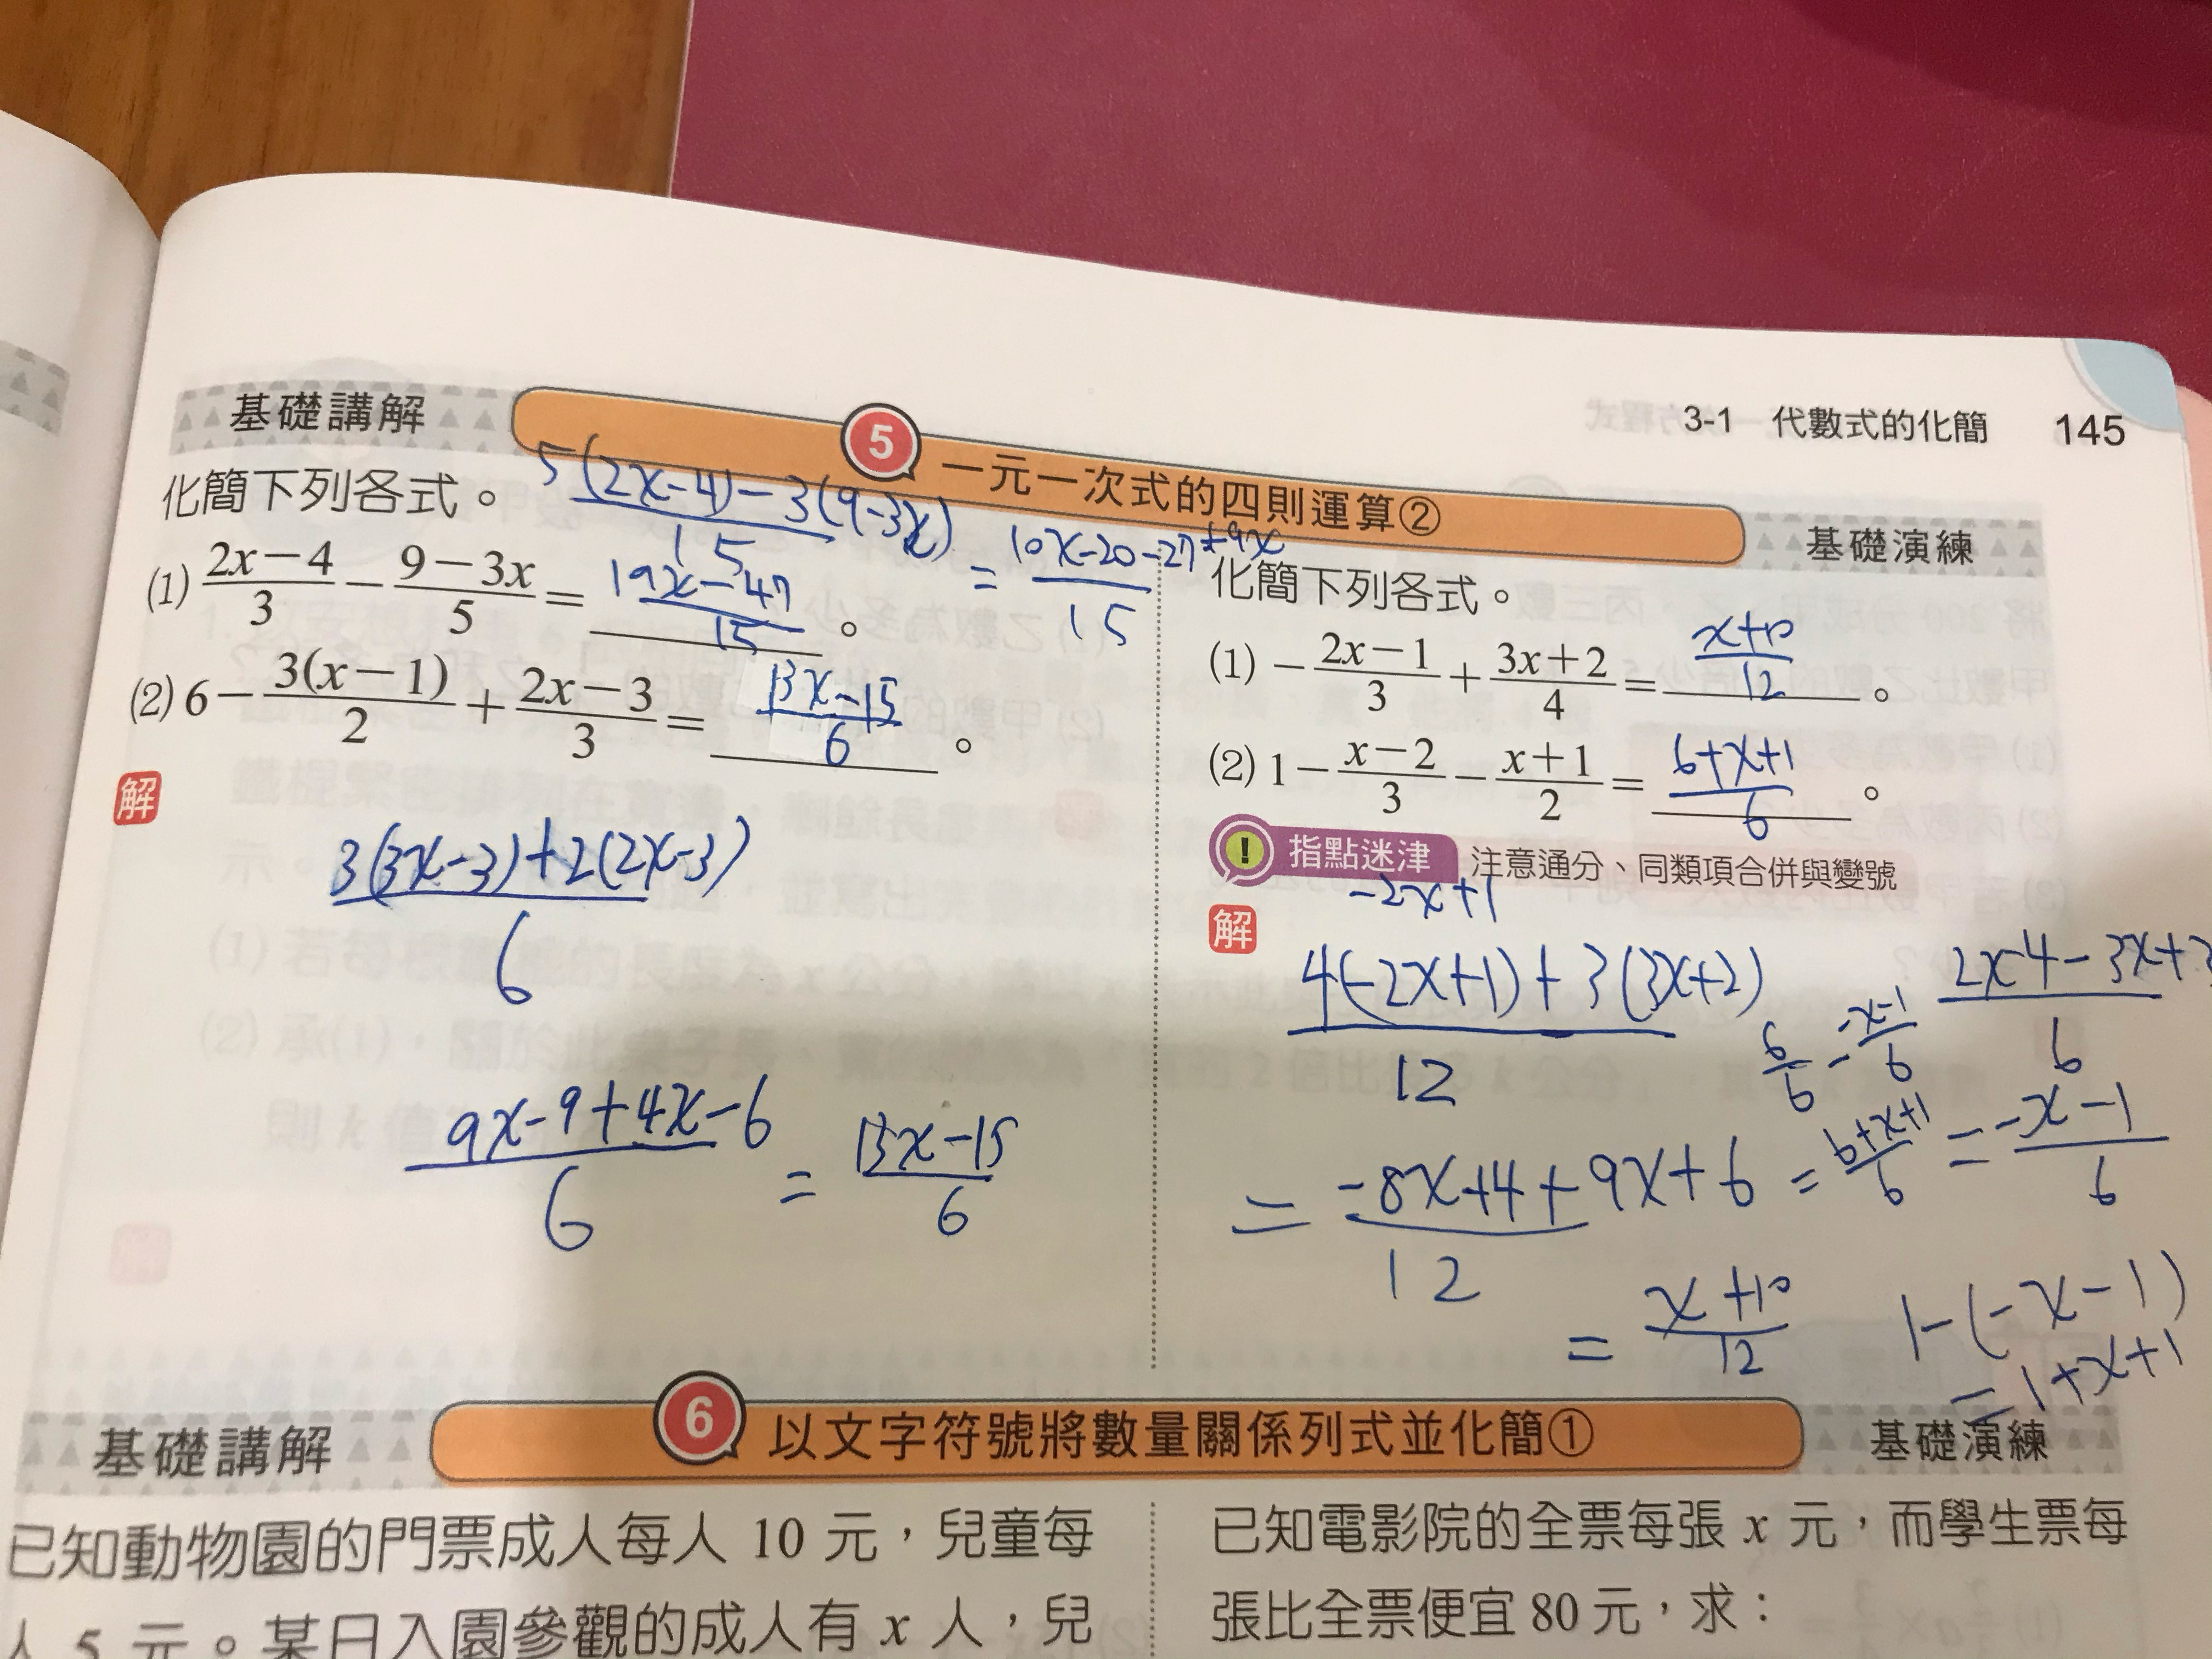 3-1 代數式的化簡 145
基礎講解
5 一元一次式的四則運算②
基礎演練
化簡下列各式。
5(2x-4)-3(9-3x)/15 = 10x-20-27+9x/15
(1) 2x-4/3 - 9-3x/5 = 19x-47/15 。
(2) 6 - 3(x-1)/2 + 2x-3/3 = 13x-15/6 。
解
3(3x-3)+2(2x-3)/6
9x-9+4x-6/6 = 13x-15/6
化簡下列各式。
(1) - 2x-1/3 + 3x+2/4 = x+10/12 。
(2) 1 - x-2/3 - x+1/2 = 6+x+1/6 。
! 指點迷津 注意通分、同類項合併與變號
-2x+1
解
4(-2x+1)+3(3x+2)/12
= -8x+4+9x+6/12
= x+10/12
2x-4-3x+3/6
= -x-1/6
6/6 - -x-1/6
= 6+x+1/6
1-(-x-1)
=1+x+1
基礎講解
6 以文字符號將數量關係列式並化簡①
基礎演練
已知動物園的門票成人每人 10 元，兒童每
人 5 元。某日入園參觀的成人有 x 人，兒
已知電影院的全票每張 x 元，而學生票每
張比全票便宜 80 元，求：